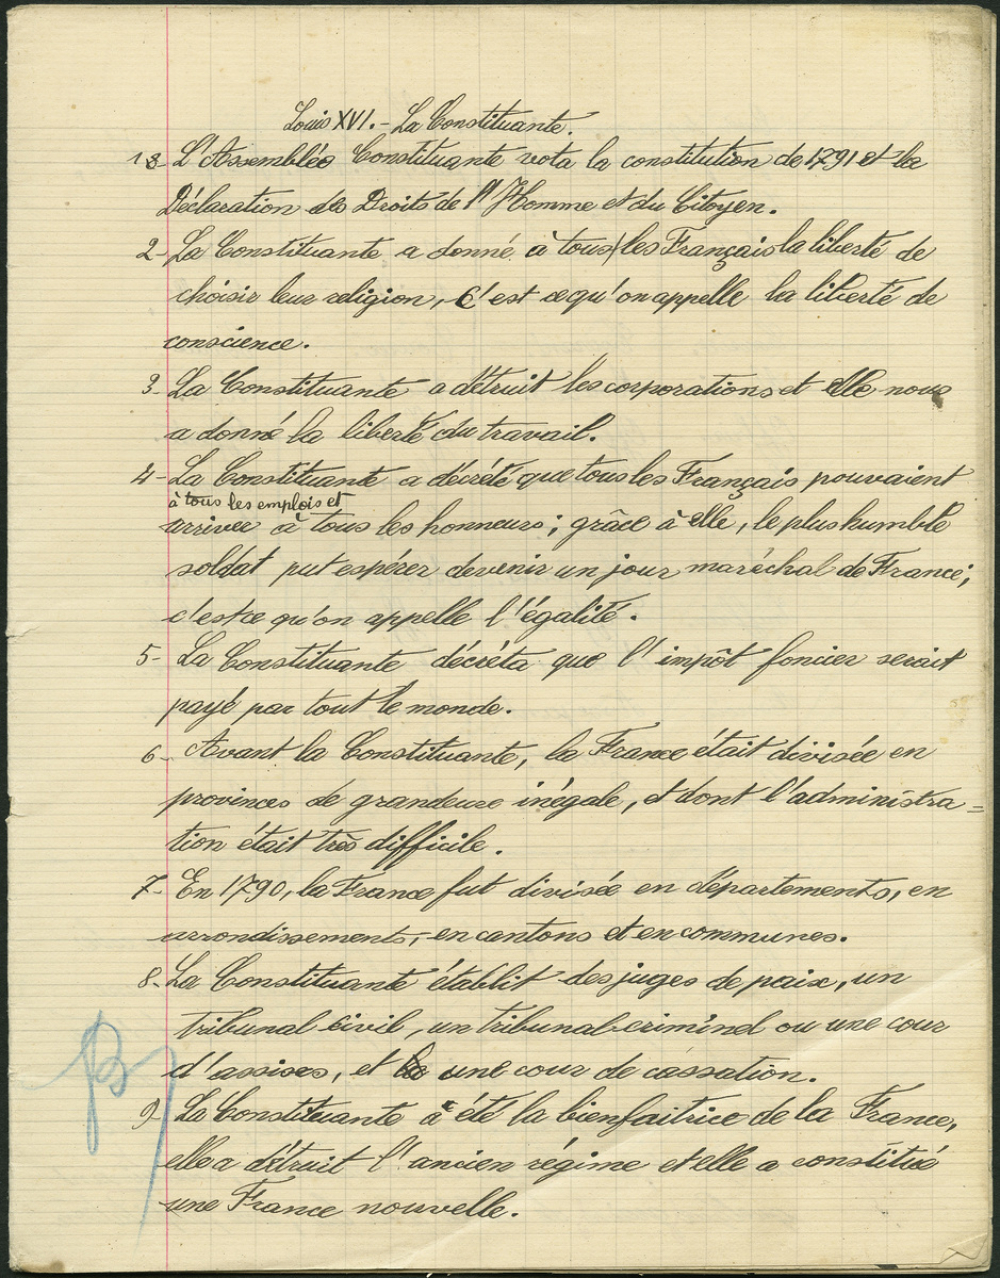 Louis XVI. - La Constituante.
1- L'Assemblée Constituante vota la constitution de 1791 et la
Déclaration des Droits de l'Homme et du Citoyen.
2- La Constituante a donné à tous les Français la liberté de
choisir leur religion, C'est ce qu'on appelle la liberté de
conscience.
3- La Constituante a détruit les corporations et elle nous
a donné la liberté du travail.
4- La Constituante a décrété que tous les Français pouvaient
à tous les emplois et
arriver à tous les honneurs ; grâce à elle, le plus humble
soldat put espérer devenir un jour maréchal de France ;
c'est ce qu'on appelle l'égalité.
5- La Constituante décréta que l'impôt foncier serait
payé par tout le monde.
6- Avant la Constituante, la France était divisée en
provinces de grandeur inégale, et dont l'administra-
tion était très difficile.
7- En 1790, la France fut divisée en départements, en
arrondissements, en cantons et en communes.
8- La Constituante établit des juges de paix, un
tribunal civil, un tribunal criminel ou une cour
d'assises, et une cour de cassation.
9- La Constituante a été la bienfaitrice de la France,
elle a détruit l'ancien régime et elle a constitué
une France nouvelle.